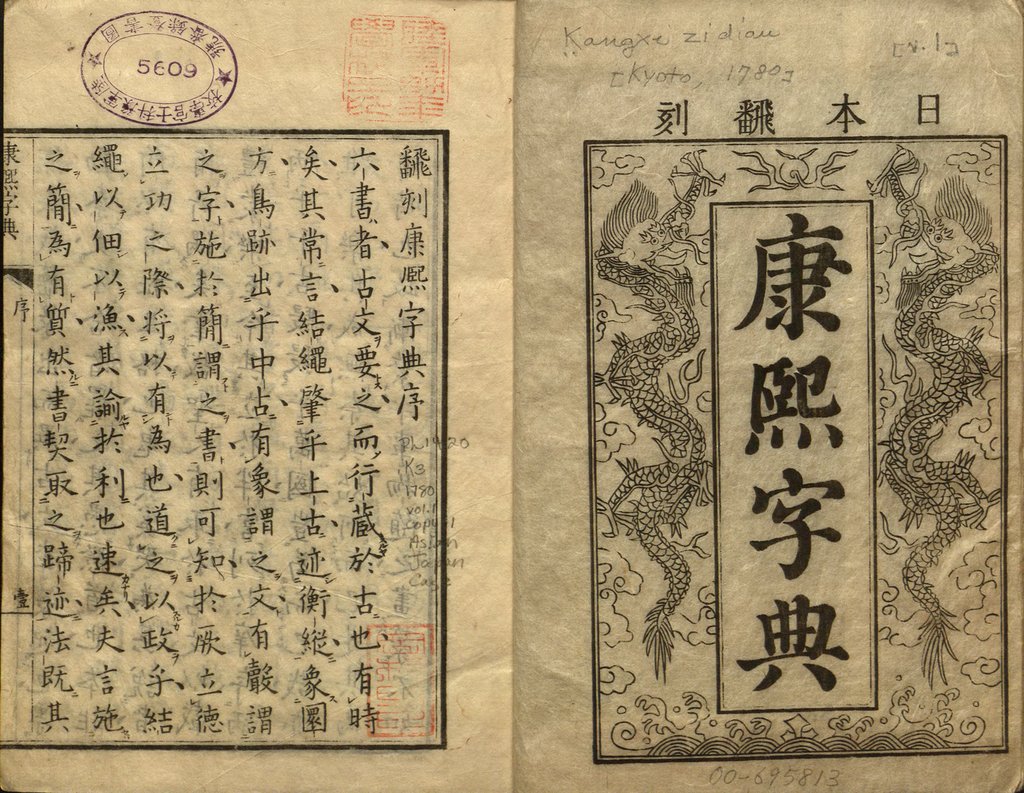 Kangxi zidian [v.1]
[Kyoto, 1780]
日本飜刻
康熙字典
00-695813
5609
飜刻康熙字典序
六書者古文要之而行藏於古也有時
矣其常言結繩肇乎上古迹衡縱象圜
方鳥跡出乎中占有象謂之文有聲謂
之字施於簡謂之書則可知於厥立德
立功之際將以有為也道之以政乎結
繩以佃以漁其諭於利也速矣夫言施
之簡為有質然書契取之蹄迹法既其
康熙字典
序
壹
PL1420
K3
1780
vol.1
copy 1
Asian
Japan
Cage